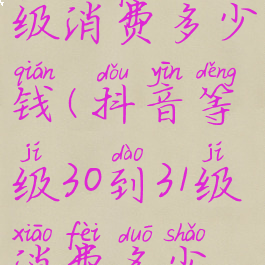 级消费多少
qián dǒu yīn děng
钱(抖音等
jí dào jí
级30到31级
xiāo fèi duō shǎo
消费多少